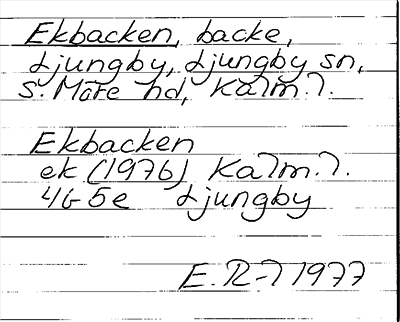 Ekbacken, backe,
Ljungby, Ljungby sn,
S. Möre hd, Kalm. l.
Ekbacken
ek (1976) Kalm. l.
4G 5e Ljungby
E. R-l 1977